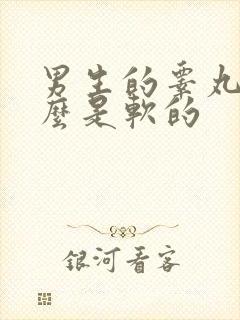 男生的睾丸
麼是軟的
銀河看客